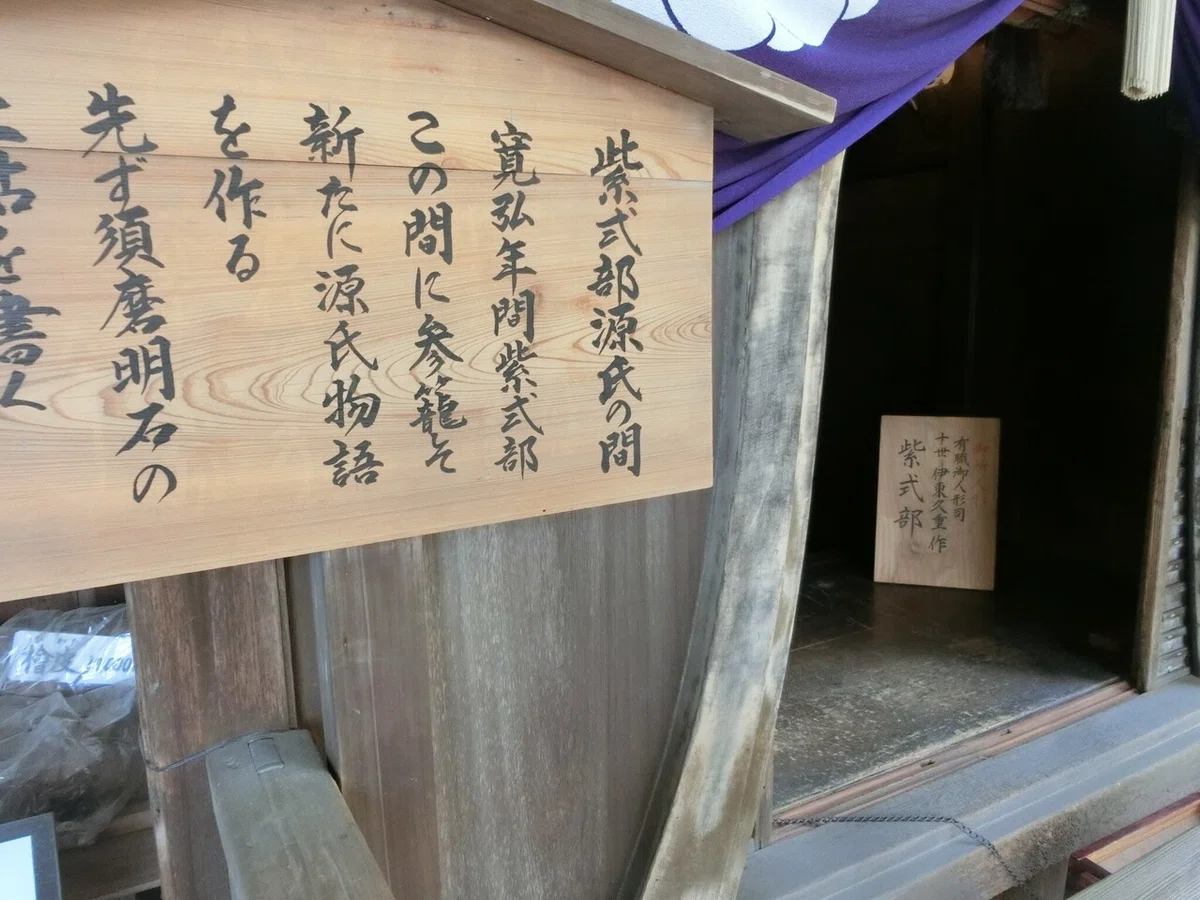 紫式部源氏の間
寛弘年間紫式部
この間に参籠そ
新たに源氏物語
を作る
先ず須磨明石の
二帖を書く
有職御人形司
十世 伊東久重 作
紫式部
檜皮